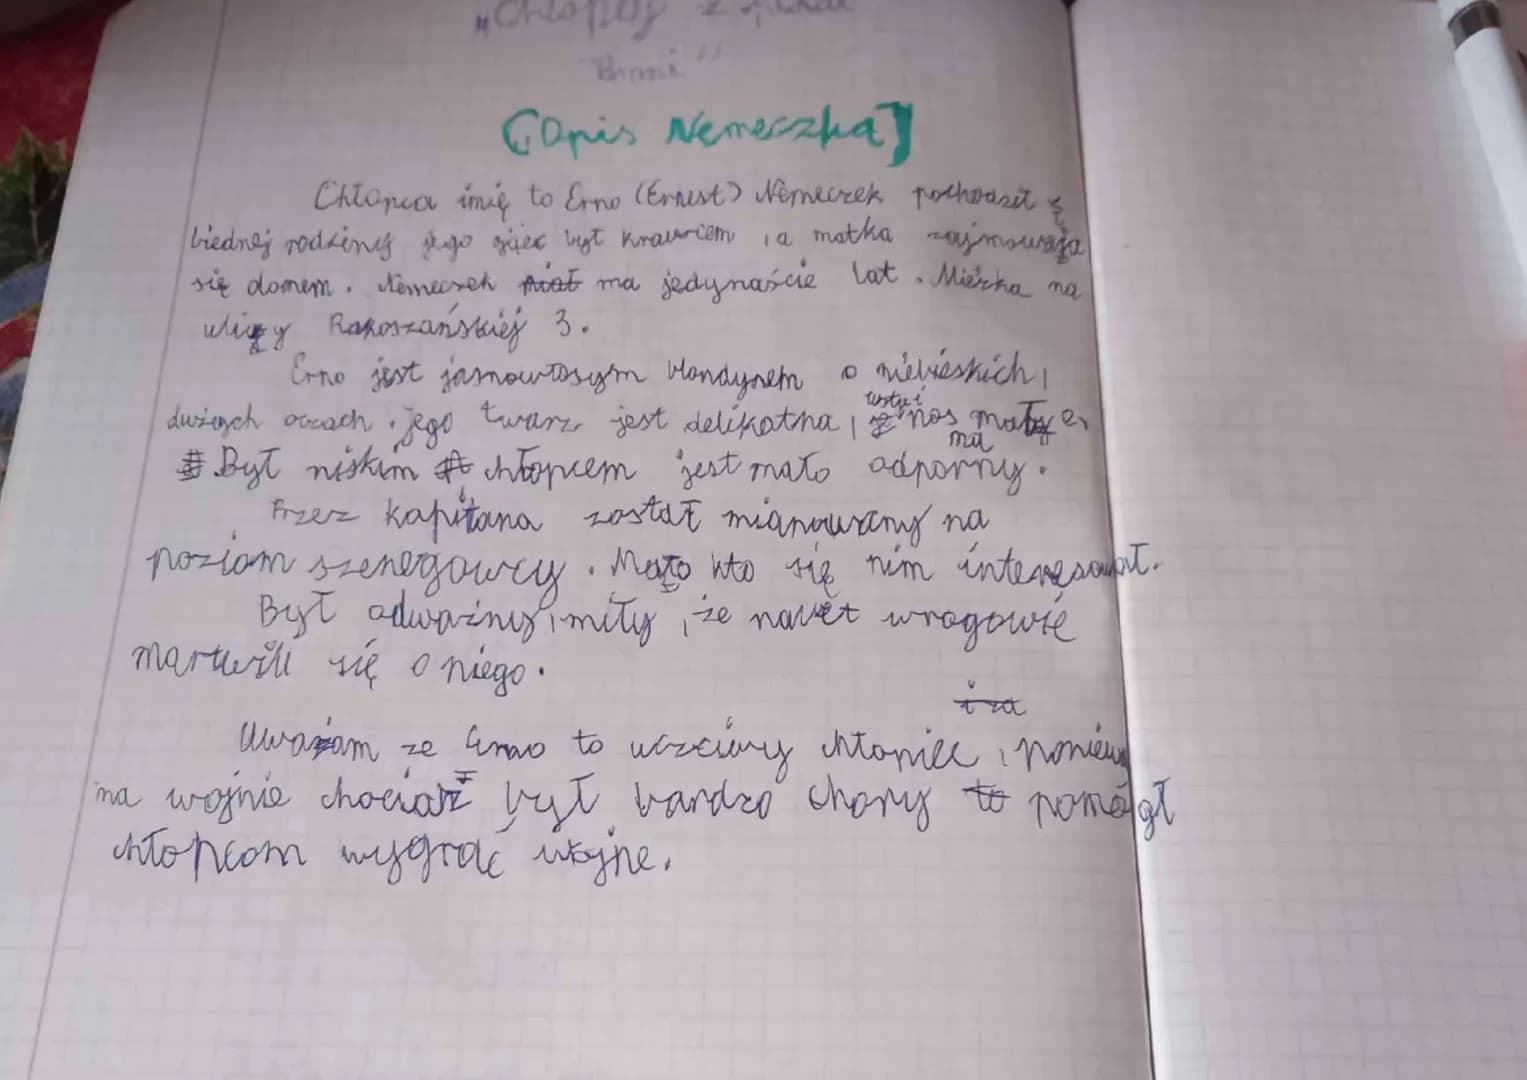 "Chłopcy z placu
Broni"
[Opis Nemeczka]
Chłopca imię to Erno (Ernest) Nemeczek pochodził z
biednej rodziny jego ojciec był krawcem, a matka zajmowała
się domem. Nemeczek miał ma jedynaście lat. Mieszka na
ulicy Rakoszańskiej 3.
Erno jest jasnowłosym blondynem o niebieskich,
dużych oczach. jego twarz jest delikatna, nos mały
ma
Był niskim chłopcem jest mało odporny.
Przez kapitana został mianowany na
poziom szeregowcy. Mało kto się nim interesował.
Był odważny, miły, że nawet wrogowie
martwili się o niego.
i za
Uważam ze Erno to uczciwy chłopiec, poniew
na wojnie chociaż był bardzo chory to pomógł
chłopcom wygrać wojne.